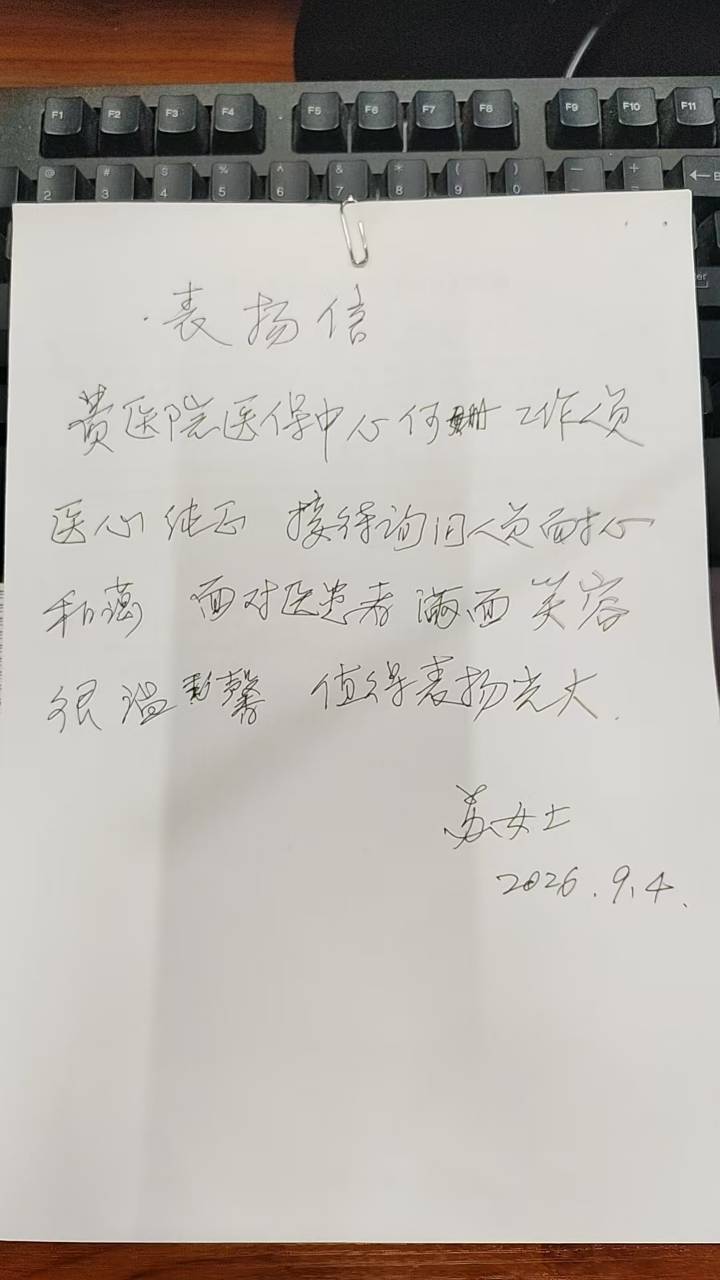 F1 F2 F3 F4 F5 F6 F7 F8 F9 F10 F11
@ # $ % ^ & * ( ) — +
2 3 4 5 6 7 8 9 0
表扬信
贵医院医保中心何 工作人员
医心纯正 接待询问人员面
和蔼 面对医患者 满面笑容
很温馨 值得表扬光大.
苏女士
2026.9.4.